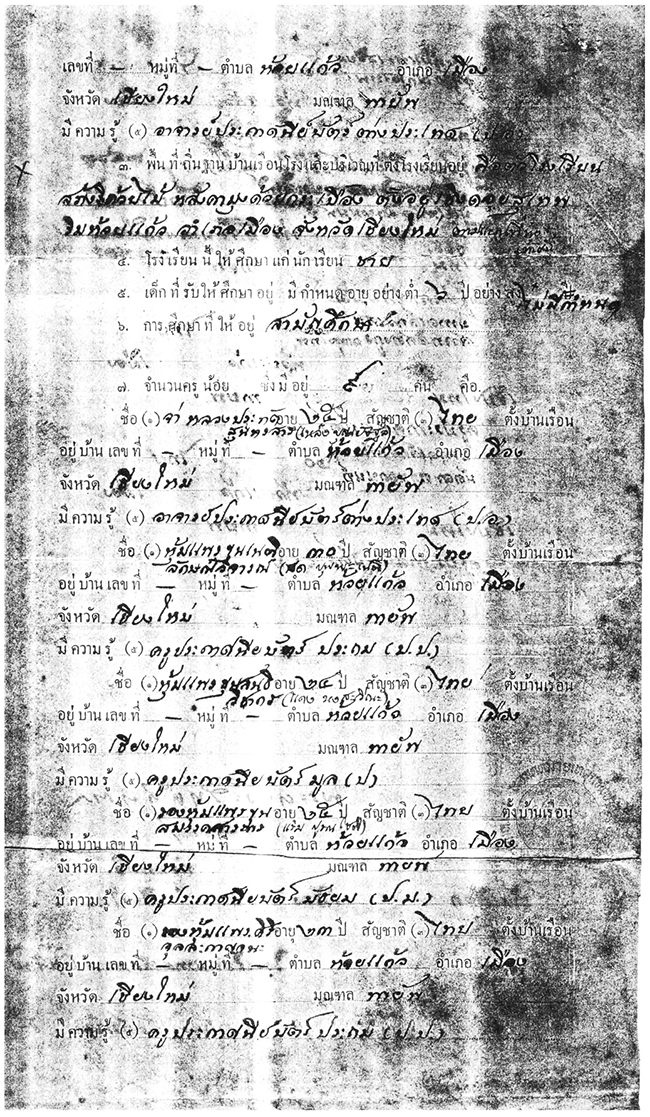 เลขที่ – หมู่ที่ – ตำบล ห้วยแก้ว อำเภอ เมือง
จังหวัด เชียงใหม่ มณฑล พายัพ
มีความรู้ (๔) อาจารย์ประกาศนียบัตร์ต่างประเทศ (ป.อ)
๓. พื้นที่ถิ่นฐานบ้านเรือนโรงและบริเวณที่ตั้งโรงเรียนอยู่ คือ โรงเรียน
หลังคามุงด้วย เชิงดอยสุเทพ
ห้วยแก้ว อำเภอเมือง จังหวัดเชียงใหม่
๔. โรงเรียนนี้ให้ศึกษาแก่นักเรียน ชาย
๕. เด็กที่รับให้ศึกษาอยู่ มีกำหนดอายุอย่างต่ำ ๖ ปี อย่างสูง ไม่มีกำหนด
๖. การศึกษาที่ให้อยู่ สามัญศึกษา
๗. จำนวนครูน้อย ซึ่งมีอยู่ คน คือ.
ชื่อ (๑) จ่า หลวงประทัต อายุ ๒๕ ปี สัญชาติ (๓) ไทย ตั้งบ้านเรือน
สุนทรสาร
อยู่บ้านเลขที่ – หมู่ที่ – ตำบล ห้วยแก้ว อำเภอ เมือง
จังหวัด เชียงใหม่ มณฑล พายัพ
มีความรู้ (๔) อาจารย์ประกาศนียบัตร์ต่างประเทศ (ป.อ)
ชื่อ (๑) หุ้มแพร ขุนเนติ อายุ ๓๐ ปี สัญชาติ (๓) ไทย ตั้งบ้านเรือน
อยู่บ้านเลขที่ – หมู่ที่ – ตำบล ห้วยแก้ว อำเภอ เมือง
จังหวัด เชียงใหม่ มณฑล พายัพ
มีความรู้ (๔) ครูประกาศนียบัตร์ ประถม (ป.ป.)
ชื่อ (๑) หุ้มแพร อายุ ๒๔ ปี สัญชาติ (๓) ไทย ตั้งบ้านเรือน
อยู่บ้านเลขที่ – หมู่ที่ – ตำบล ห้วยแก้ว อำเภอ เมือง
จังหวัด เชียงใหม่ มณฑล พายัพ
มีความรู้ (๔) ครูประกาศนียบัตร์ มูล (ป)
ชื่อ (๑) รองหุ้มแพร ขุน อายุ ๒๕ ปี สัญชาติ (๓) ไทย ตั้งบ้านเรือน
อยู่บ้านเลขที่ – หมู่ที่ – ตำบล ห้วยแก้ว อำเภอ เมือง
จังหวัด เชียงใหม่ มณฑล พายัพ
มีความรู้ (๔) ครูประกาศนียบัตร์ มัธยม (ป.ม.)
ชื่อ (๑) รองหุ้มแพร อายุ ๒๓ ปี สัญชาติ (๓) ไทย ตั้งบ้านเรือน
อยู่บ้านเลขที่ – หมู่ที่ – ตำบล ห้วยแก้ว อำเภอ เมือง
จังหวัด เชียงใหม่ มณฑล พายัพ
มีความรู้ (๔) ครูประกาศนียบัตร์ ประถม (ป.ป.)